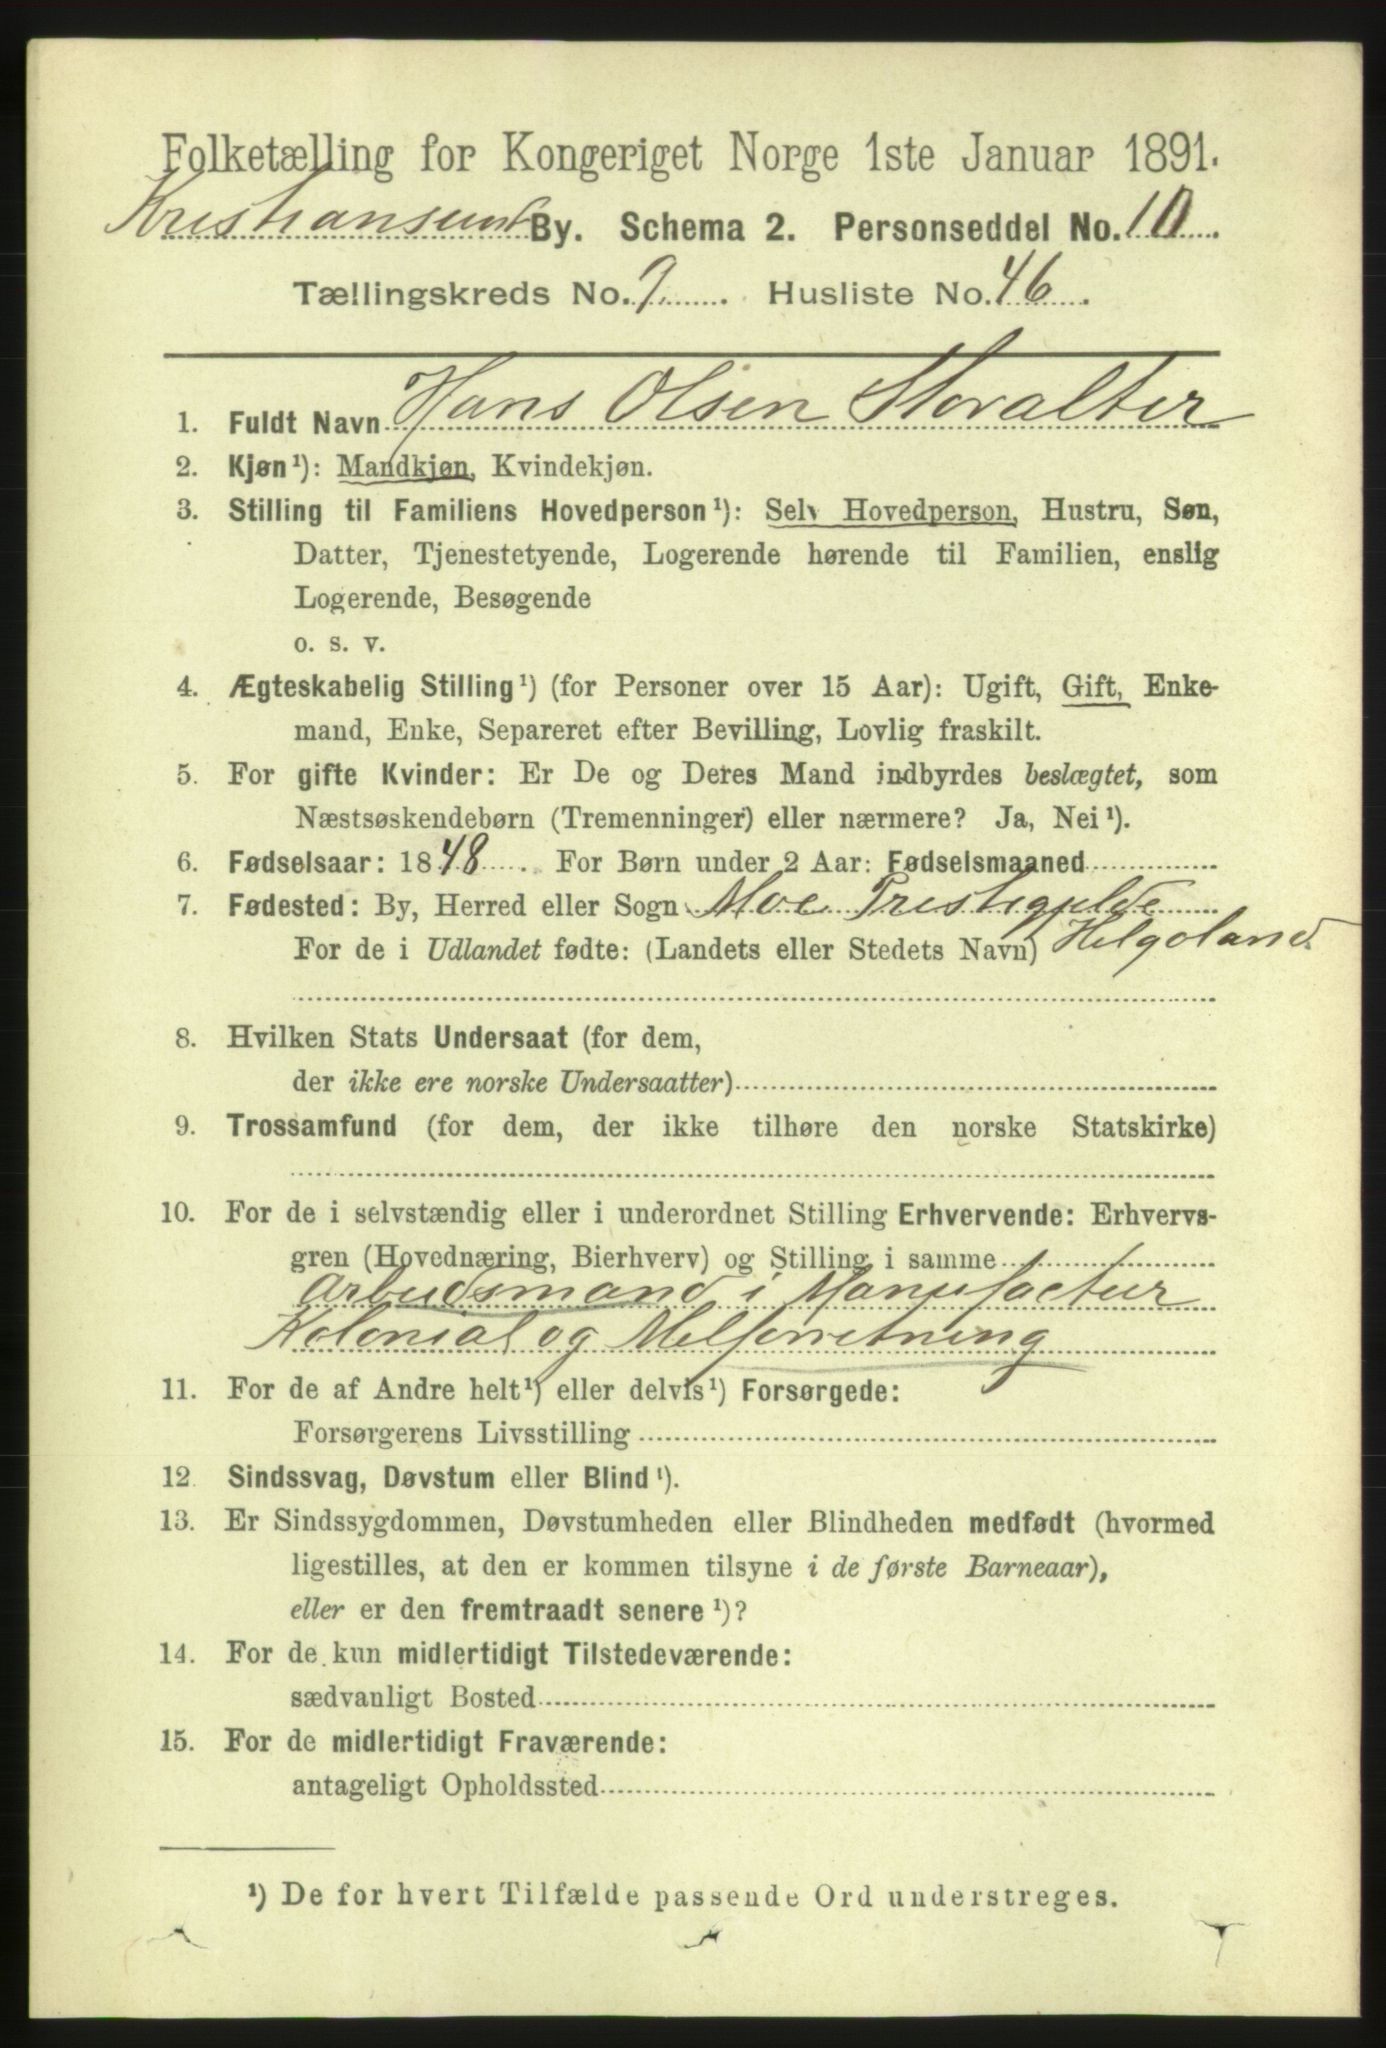 Folketælling for Kongeriget Norge 1ste Januar 1891.
Kristiansund By. Schema 2. Personseddel No. 10.
Tællingskreds No. 9. Husliste No. 46.
1. Fuldt Navn Hans Olsen Storalter
2. Kjøn¹): Mandkjøn, Kvindekjøn.
3. Stilling til Familiens Hovedperson¹): Selv Hovedperson, Hustru, Søn,
Datter, Tjenestetyende, Logerende hørende til Familien, enslig
Logerende, Besøgende
o. s. v.
4. Ægteskabelig Stilling¹) (for Personer over 15 Aar): Ugift, Gift, Enke-
mand, Enke, Separeret efter Bevilling, Lovlig fraskilt.
5. For gifte Kvinder: Er De og Deres Mand indbyrdes beslægtet, som
Næstsøskendebørn (Tremenninger) eller nærmere? Ja, Nei¹).
6. Fødselsaar: 1848. For Børn under 2 Aar: Fødselsmaaned
7. Fødested: By, Herred eller Sogn Moe Prestegjelde
For de i Udlandet fødte: (Landets eller Stedets Navn) Helgoland
8. Hvilken Stats Undersaat (for dem,
der ikke ere norske Undersaatter)
9. Trossamfund (for dem, der ikke tilhøre den norske Statskirke)
10. For de i selvstændig eller i underordnet Stilling Erhvervende: Erhvervs-
gren (Hovednæring, Bierhverv) og Stilling i samme
Arbeidsmand i Manufactur
Kolonial og Melforretning
11. For de af Andre helt¹) eller delvis¹) Forsørgede:
Forsørgerens Livsstilling
12 Sindssvag, Døvstum eller Blind¹).
13. Er Sindssygdommen, Døvstumheden eller Blindheden medfødt (hvormed
ligestilles, at den er kommen tilsyne i de første Barneaar),
eller er den fremtraadt senere¹)?
14. For de kun midlertidigt Tilstedeværende:
sædvanligt Bosted
15. For de midlertidigt Fraværende:
antageligt Opholdssted
¹) De for hvert Tilfælde passende Ord understreges.